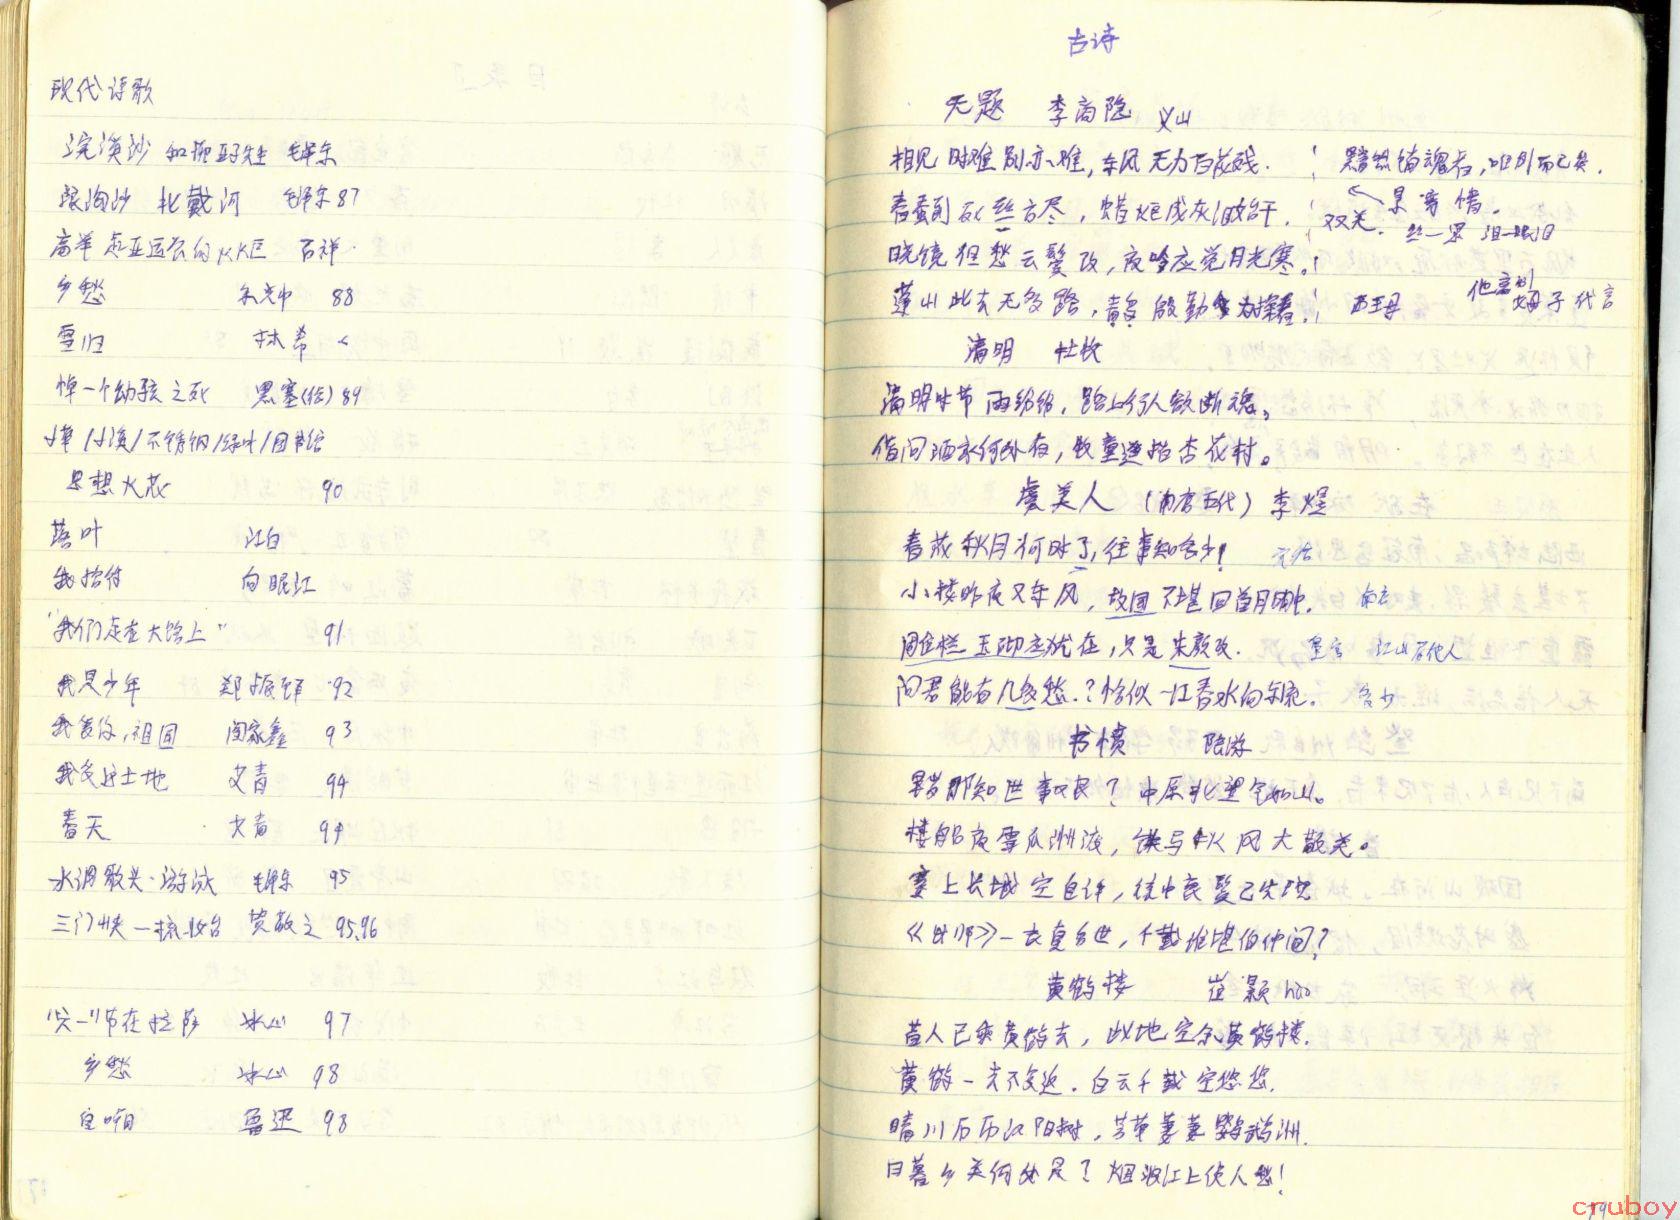 现代诗歌
浣溪沙 和柳亚子先生 毛泽东
浪淘沙 北戴河 毛泽东 87
高举起亚运会的火炬 石祥
乡愁 88
雪归 林希
悼一个幼孩之死 黑塞(德) 89
小草/小溪/不锈钢/绿叶/图书馆
思想火花 90
落叶 江白
我拾付 向眠江
"我们走在大路上" 91
我是少年 郑振铎 92
我爱你,祖国 阎家鑫 93
我爱这土地 艾青 94
春天 艾青 94
水调歌头·游泳 毛泽东 95
三门峡—梳妆台 贺敬之 95,96
"六一"节在拉萨 冰心 97
乡愁 冰心 98
自嘲 鲁迅 98
古诗
无题 李商隐 义山
相见时难别亦难,东风无力百花残. 黯然销魂者,唯别而已矣.
春蚕到死丝方尽,蜡炬成灰泪始干. 双关. 景寓情.
丝—思 泪—眼泪
晓镜但愁云鬓改,夜吟应觉月光寒.
蓬山此去无多路,青鸟殷勤为探看. 西王母 他离别 妻子代言
清明 杜牧
清明时节雨纷纷,路上行人欲断魂。
借问酒家何处有,牧童遥指杏花村。
虞美人 (南唐五代) 李煜
春花秋月何时了,往事知多少! 完结
小楼昨夜又东风,故国不堪回首月明中. 南唐
雕栏玉砌应犹在,只是朱颜改. 皇宫 江山石他人
问君能有几多愁.?恰似一江春水向东流. 多少
书愤 陆游
早岁那知世事艰?中原北望气如山。
楼船夜雪瓜洲渡,铁马秋风大散关。
塞上长城空自许,镜中衰鬓已先斑
《出师》一表真名世,千载谁堪伯仲间?
黄鹤楼 崔颢 hào
昔人已乘黄鹤去,此地空余黄鹤楼.
黄鹤一去不复返.白云千载空悠悠.
晴川历历汉阳树,芳草萋萋鹦鹉洲.
日暮乡关何处是?烟波江上使人愁!
cruboy